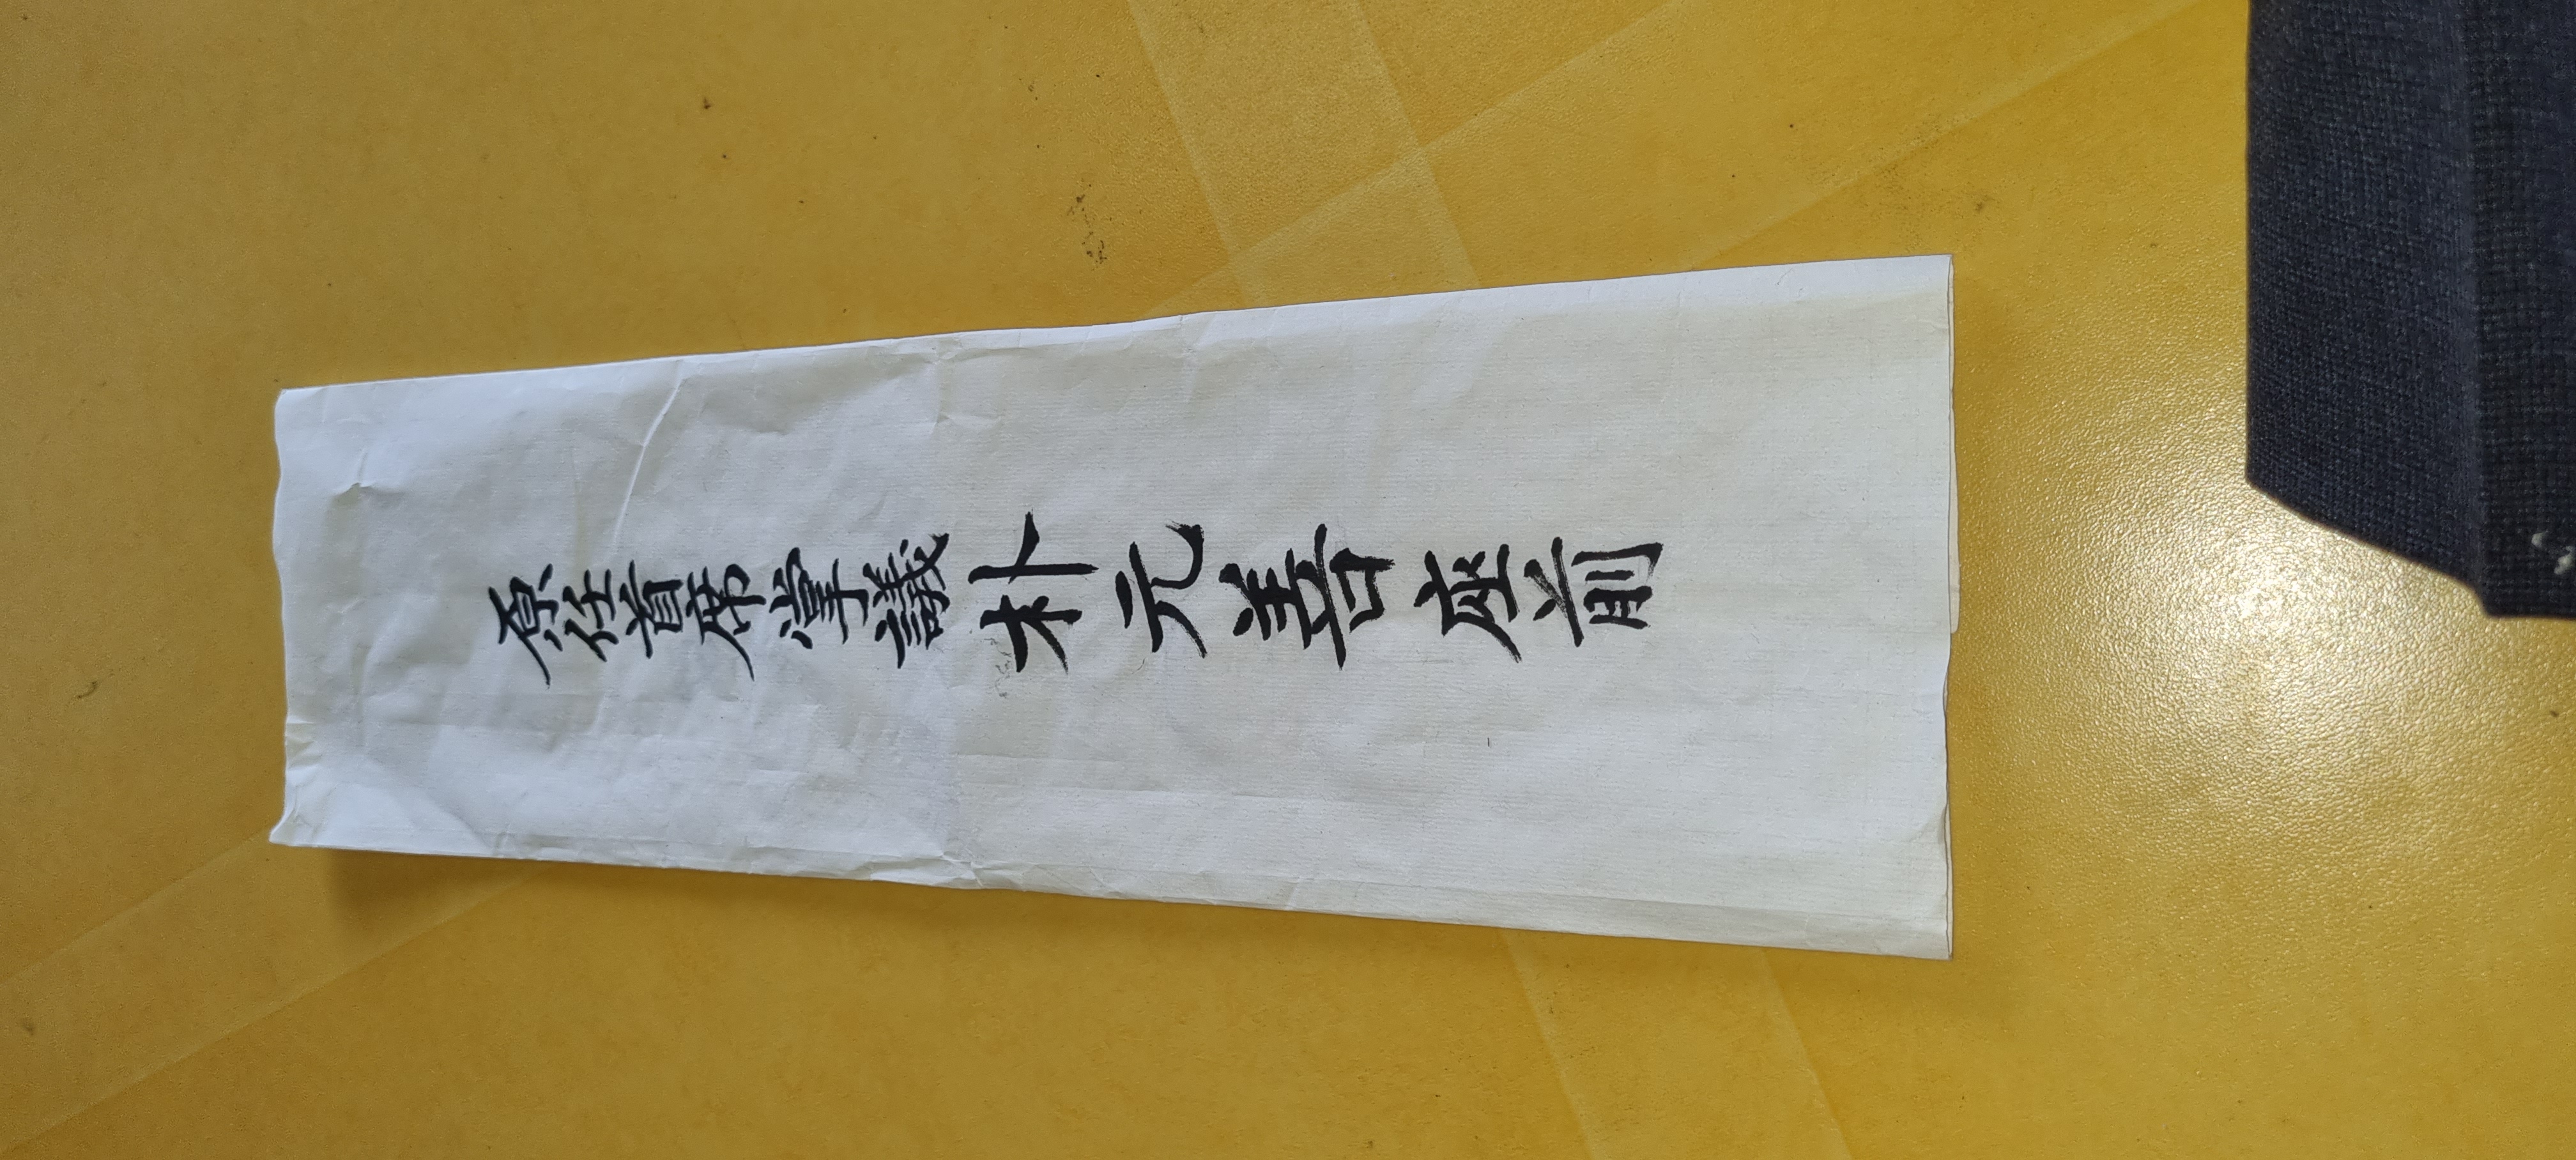 原任首席掌議朴元善座前